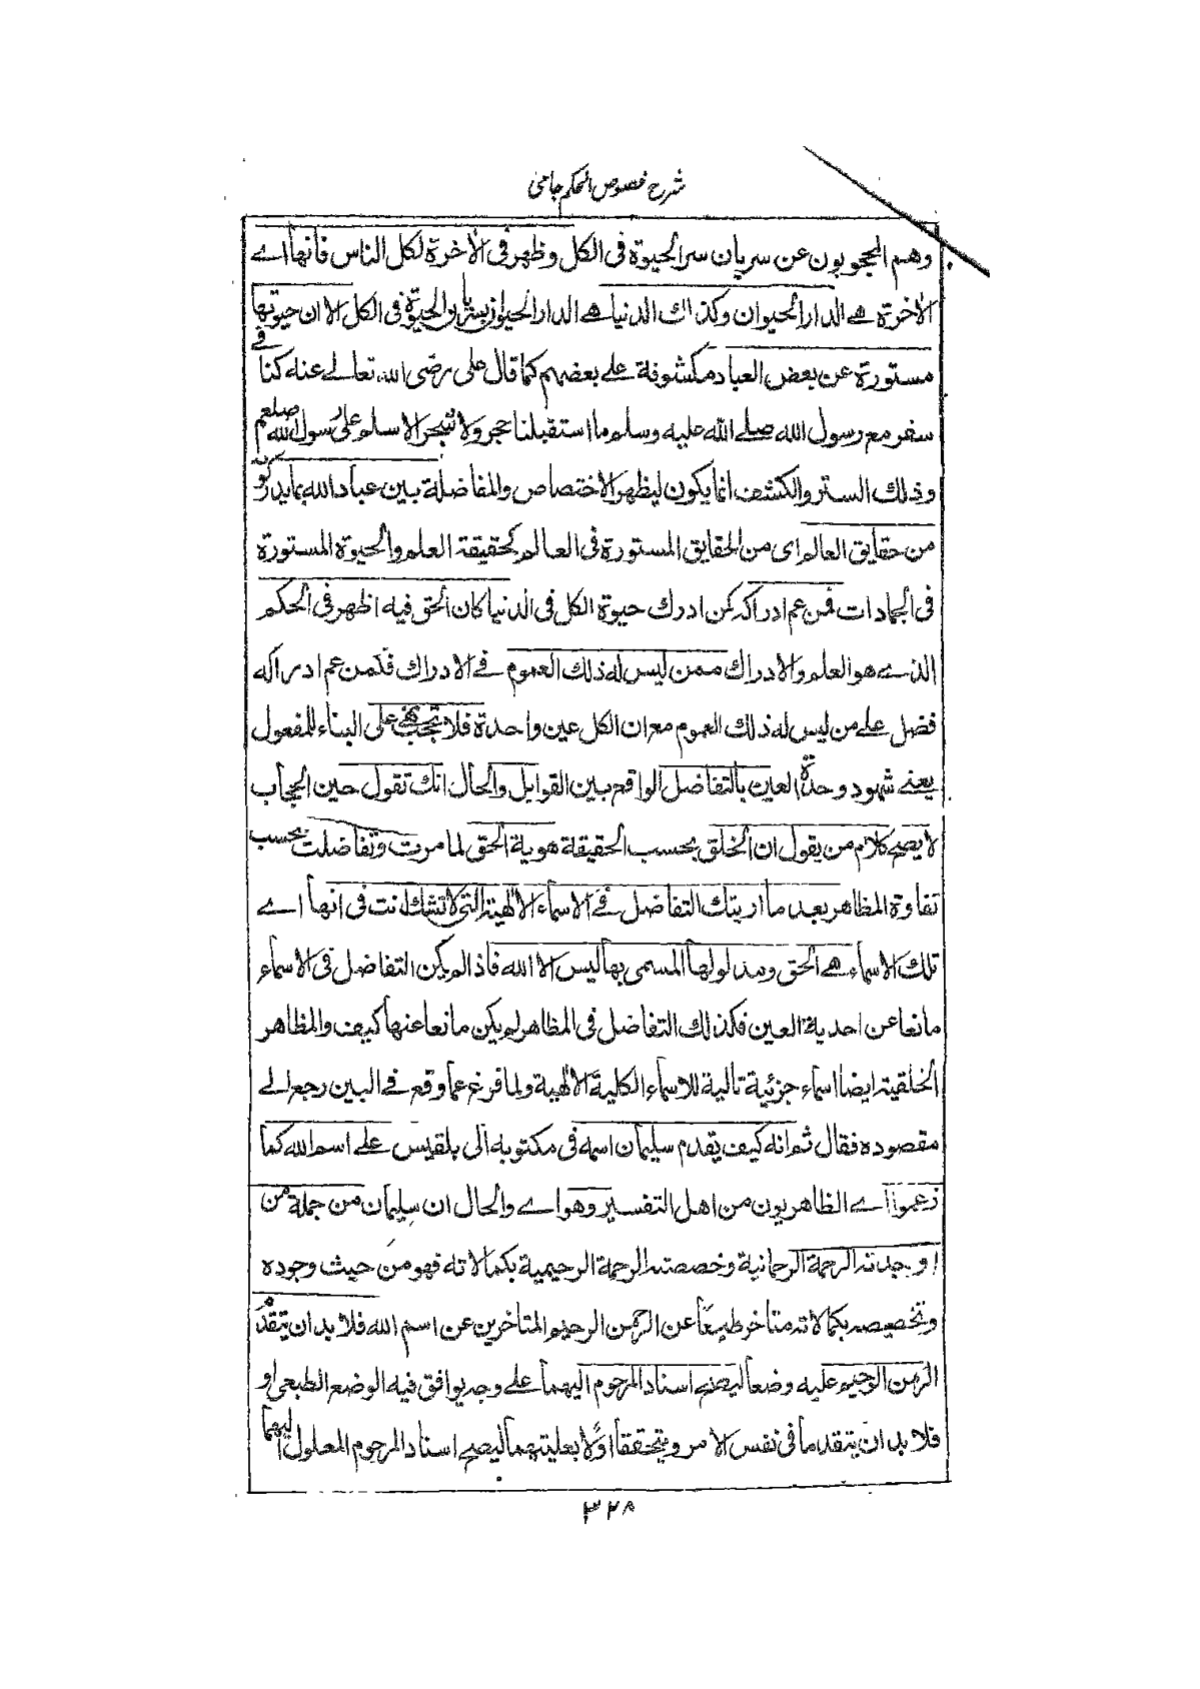 شرح فصوص الحكم جامى
وهم المحجوبون عن سريان سر الحيوة فى الكل وظهر فى الآخرة لكل الناس فانها اے
الآخرة هے الدار الحيوان وكذلك الدنيا هے الدار الحيوان بسريان الحيوة فى الكل الا ان حيوتها
مستورة عن بعض العباد مكشوفة علے بعضهم كما قال على رضى الله تعالے عنه كنا فے
سفر مع رسول الله صلے الله عليه وسلم ما استقبلنا حجر ولا شجر الا سلم على رسول الله صلعم
وذلك الستر والكشف انما يكون ليظهر الاختصاص والمفاضلة بين عباد الله بما يدركون
من حقايق العالم اى من الحقايق المستورة فى العالم كحقيقة العلم والحيوة المستورة
فى الجمادات فمن عم ادراكه كمن ادرك حيوة الكل فى الدنيا كان الحق فيه اظهر فى الحكم
الذے هو العلم والادراك ممن ليس له ذلك العموم فے الادراك فلمن عم ادراكه
فضل علے من ليس له ذلك العموم مع ان الكل عين واحدة فلا تحجب على البناء للمفعول
يعنے شهود وحدة العين بالتفاضل الواقع بين القوابل والحال انك تقول حين الحجاب
لا يصح كلام من يقول ان الخلق بحسب الحقيقة هوية الحق لما مرت وتفاضلت بحسب
تفاوة المظاهر بعد ما اريتك التفاضل فے الاسماء الالهية التى لا تشك انت فى انها اے
تلك الاسماء هے الحق ومدلولها المسمى بها ليس الا الله فاذا لم يكن التفاضل فى الاسماء
مانعا عن احدية العين فكذلك التفاضل فى المظاهر لم يكن مانعا عنها كيف والمظاهر
الخلقية ايضا اسماء جزئية تالية للاسماء الكلية الالهية ولما فرغ عما وقع فے البين رجع الے
مقصوده فقال ثم انه كيف يقدم سليمان اسمه فى مكتوبه الى بلقيس علے اسم الله كما
زعموا اے الظاهريون من اهل التفسير وهو اے والحال ان سليمان من جملة من
اوجدته الرحمة الرحمانية وخصصته الرحمة الرحيمية بكمالاته فهو من حيث وجوده
وتخصيصه بكمالاته متاخر طبعا عن الرحمن الرحيم المتاخرين عن اسم الله فلا بد ان يتقدم
الرحمن الرحيم عليه وضعا ليصح اسناد المرحوم اليهما علے وجه يوافق فيه الوضع الطبعى او
فلا بد ان يتقدما فى نفس الامر ويتحققا اولا بعليتهما ليصح اسناد المرحوم المعلول اليهما
٣٢٨